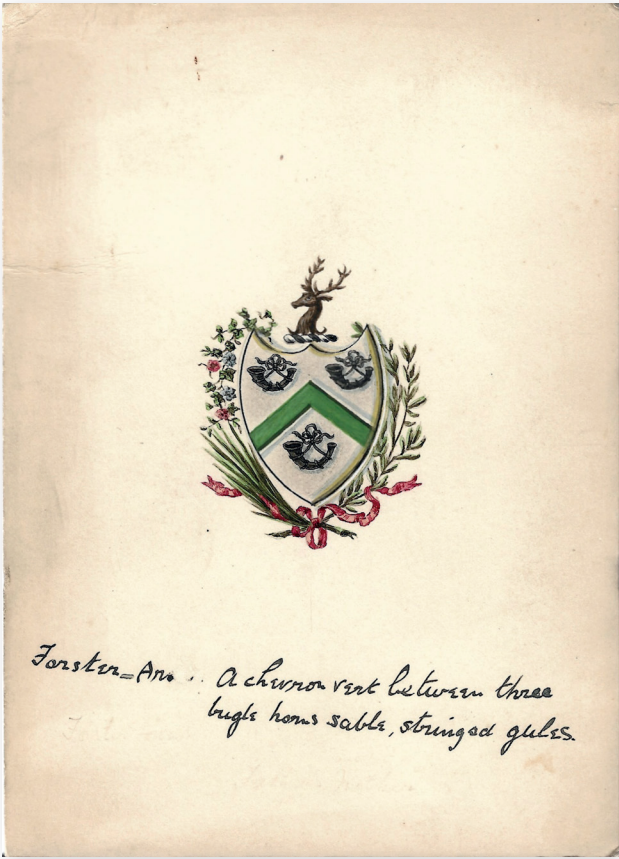 Forster = Ar. . . A chevron vert between three
bugle horns sable, stringed gules.